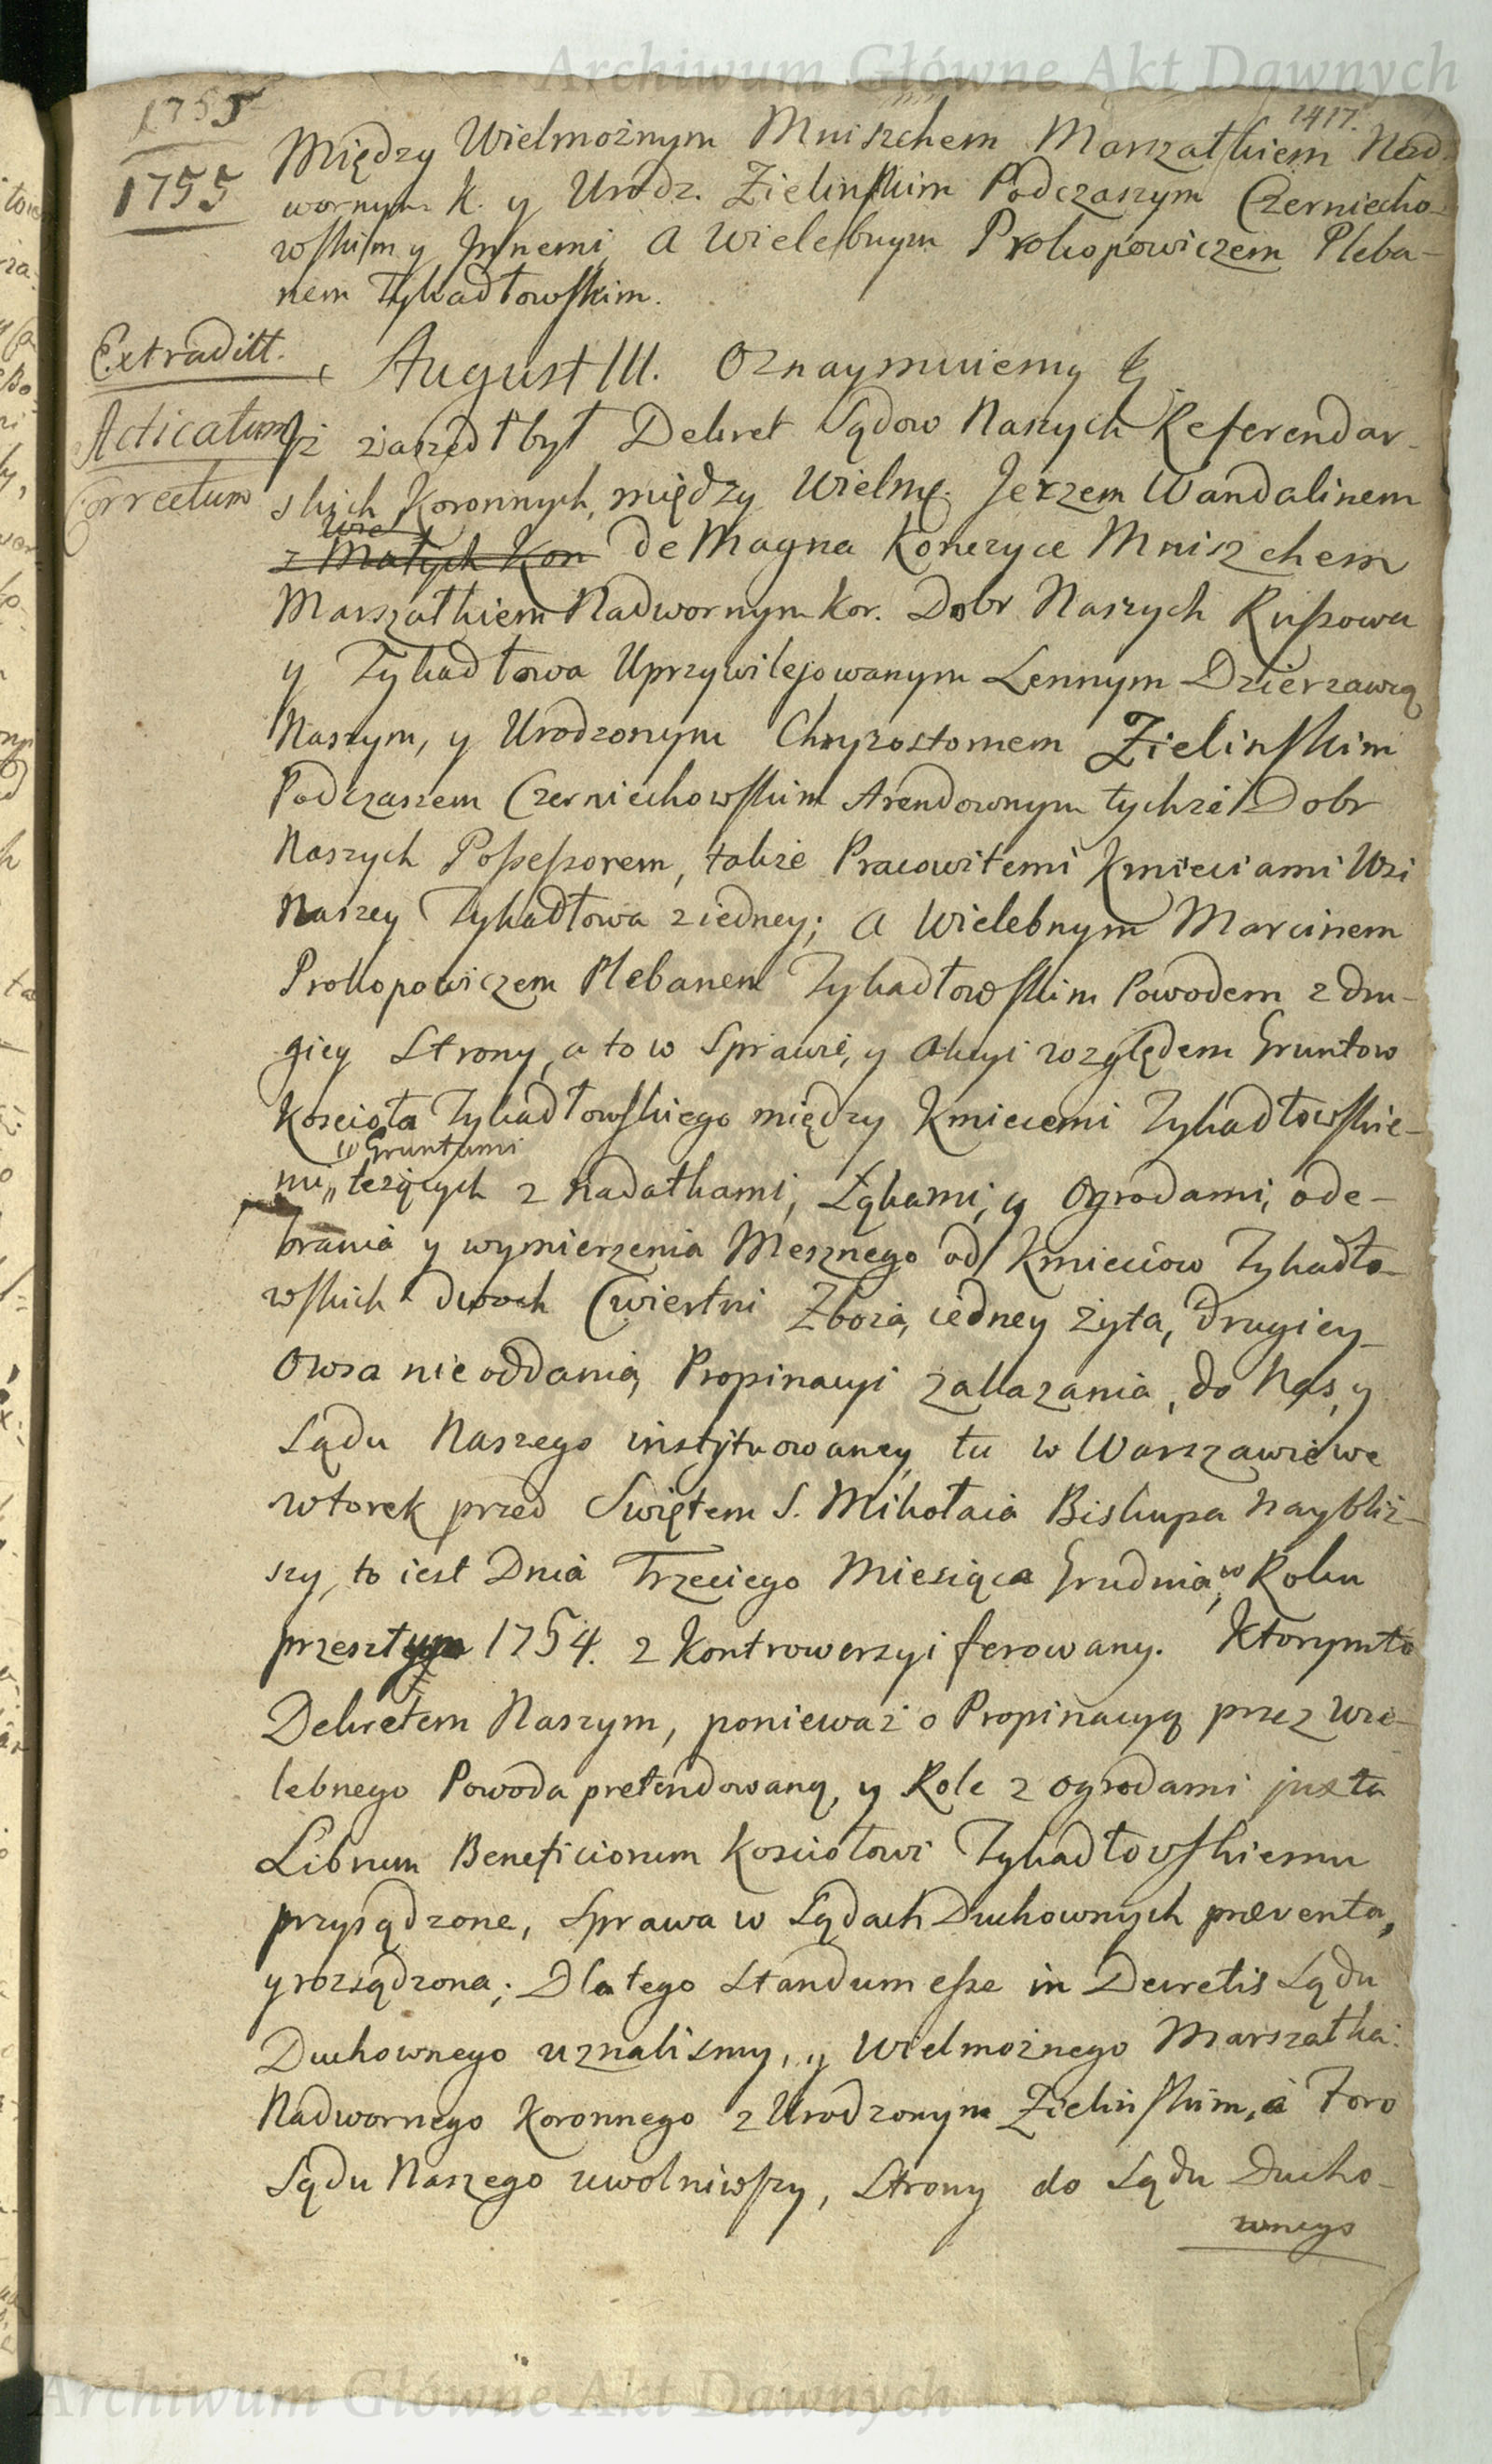 Archiwum Główne Akt Dawnych
1755
1417.
1755
Między Wielmożnym Mniszchem Marszałkiem Nad-
wornym K. y Urodz. Zielinſkim Podczaszym Czerniecho-
wſkim y Innemi, a Wielebnym Prokopowiczem Pleba-
nem Tykadłowſkim.
Extraditt.
August III. Oznaymuiemy &
Acticatum
Iż zaszedł był Dekret Sądow Naszych Referendar-
Correctum
skich Koronnych, między Wielmż. Jerzem Wandalinem
Wie
z Małych Kon de Magna Konczyce Mniszchem
Marszałkiem Nadwornym Kor. Dobr Naszych Ruſzowa
y Tykadłowa Uprzywilejowanym Lennym Dzierzawcą
Naszym, y Urodzonym Chryzostomem Zielinſkim
Podczaszem Czerniechowſkim Arendownym tychże Dobr
Naszych Poſseſsorem, także Pracowitemi Kmieciami Wsi
Naszey Tykadłowa z iedney; a Wielebnym Marcinem
Prokopowiczem Plebanem Tykadłowſkim Powodem z dru-
giey Strony, a to w Sprawie, y Akcyi względem Gruntow
Kościoła Tykadłowſkiego między Kmieciemi Tykadłowſkie-
Gruntami
mi leżących z nadatkami, Łąkami, y Ogrodami, ode-
brania y wymierzenia Mesznego od Kmieciow Tykadło-
wſkich dwoch Cwiertni Zboża, iedney żyta, drugiey
Owsa nie oddania, Propinacyi zakazania, do Nas, y
Sądu Naszego instytuowaney, tu w Warszawie we
wtorek przed Swiętem S. Mikołaia Biskupa naybliż-
szy, to iest Dnia Trzeciego Miesiąca Grudnia, w Roku
przeszłym 1754. z Kontrowersyi ferowany. Ktorymto
Dekretem Naszym, ponieważ o Propinacyą przez Wie-
lebnego Powoda pretendowaną, y Role z ogrodami juxta
Librum Beneficiorum Kosciołowi Tykadłowſkiemu
przysądzone, Sprawa w Sądach Duchownych præventa,
y rozsądzona; Dlatego Standum eſse in Decretis Sądu
Duchownego uznalismy, y Wielmożnego Marszałka
Nadwornego Koronnego z Urodzonym Zielinſkim, a Foro
Sądu Naszego uwolniwſzy, Strony do Sądu Ducho-
wnego
Archiwum Główne Akt Dawnych